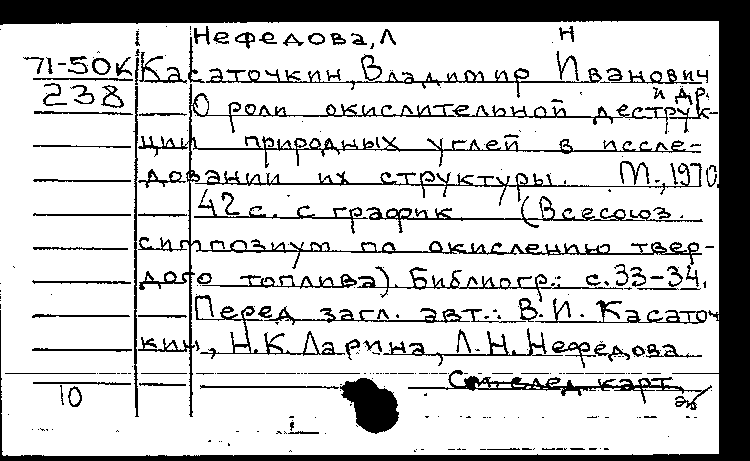 Нефедова, Л Н
71-50К Касаточкин, Владимир Иванович
и др.
238 О роли окислительной деструк-
ции природных углей в иссле-
довании их структуры. М., 1970.
42 с. с график. (Всесоюз.
симпозиум по окислению твер-
дого топлива). Библиогр.: с. 33-34.
Перед загл. авт.: В. И. Касаточ
кин, Н. К. Ларина, Л. Н. Нефедова
См. след карт.
10